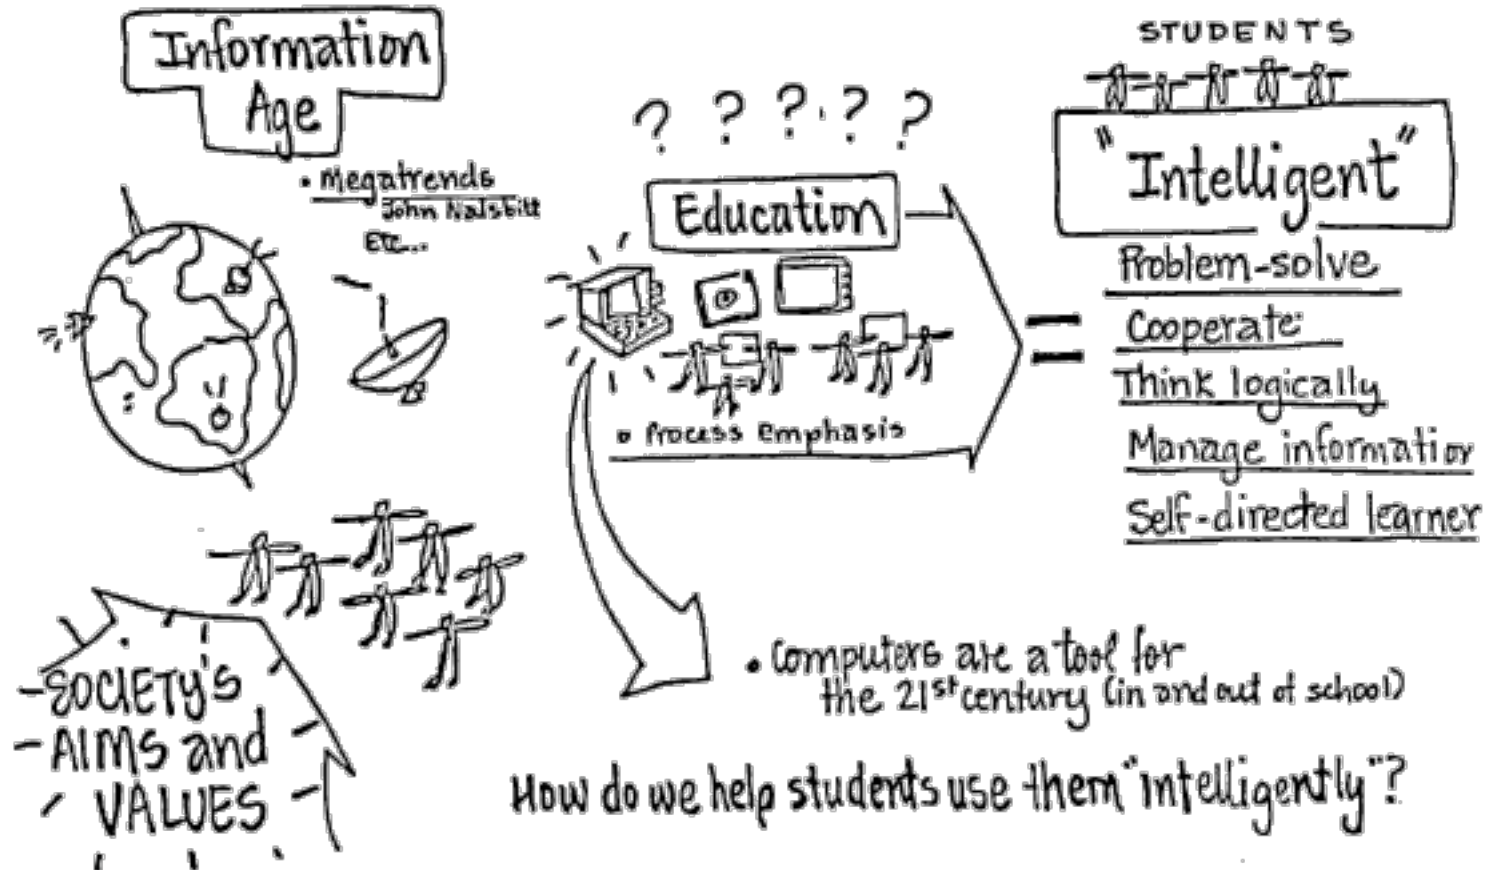 Information
Age
• Megatrends
John Naisbitt
Etc...
SOCIETY'S
AIMS and
VALUES
? ? ? ? ?
Education
• Process emphasis
=
STUDENTS
"Intelligent"
Problem-solve
Cooperate
Think logically
Manage information
Self-directed learner
• Computers are a tool for
the 21st century (in and out of school)
How do we help students use them "intelligently"?